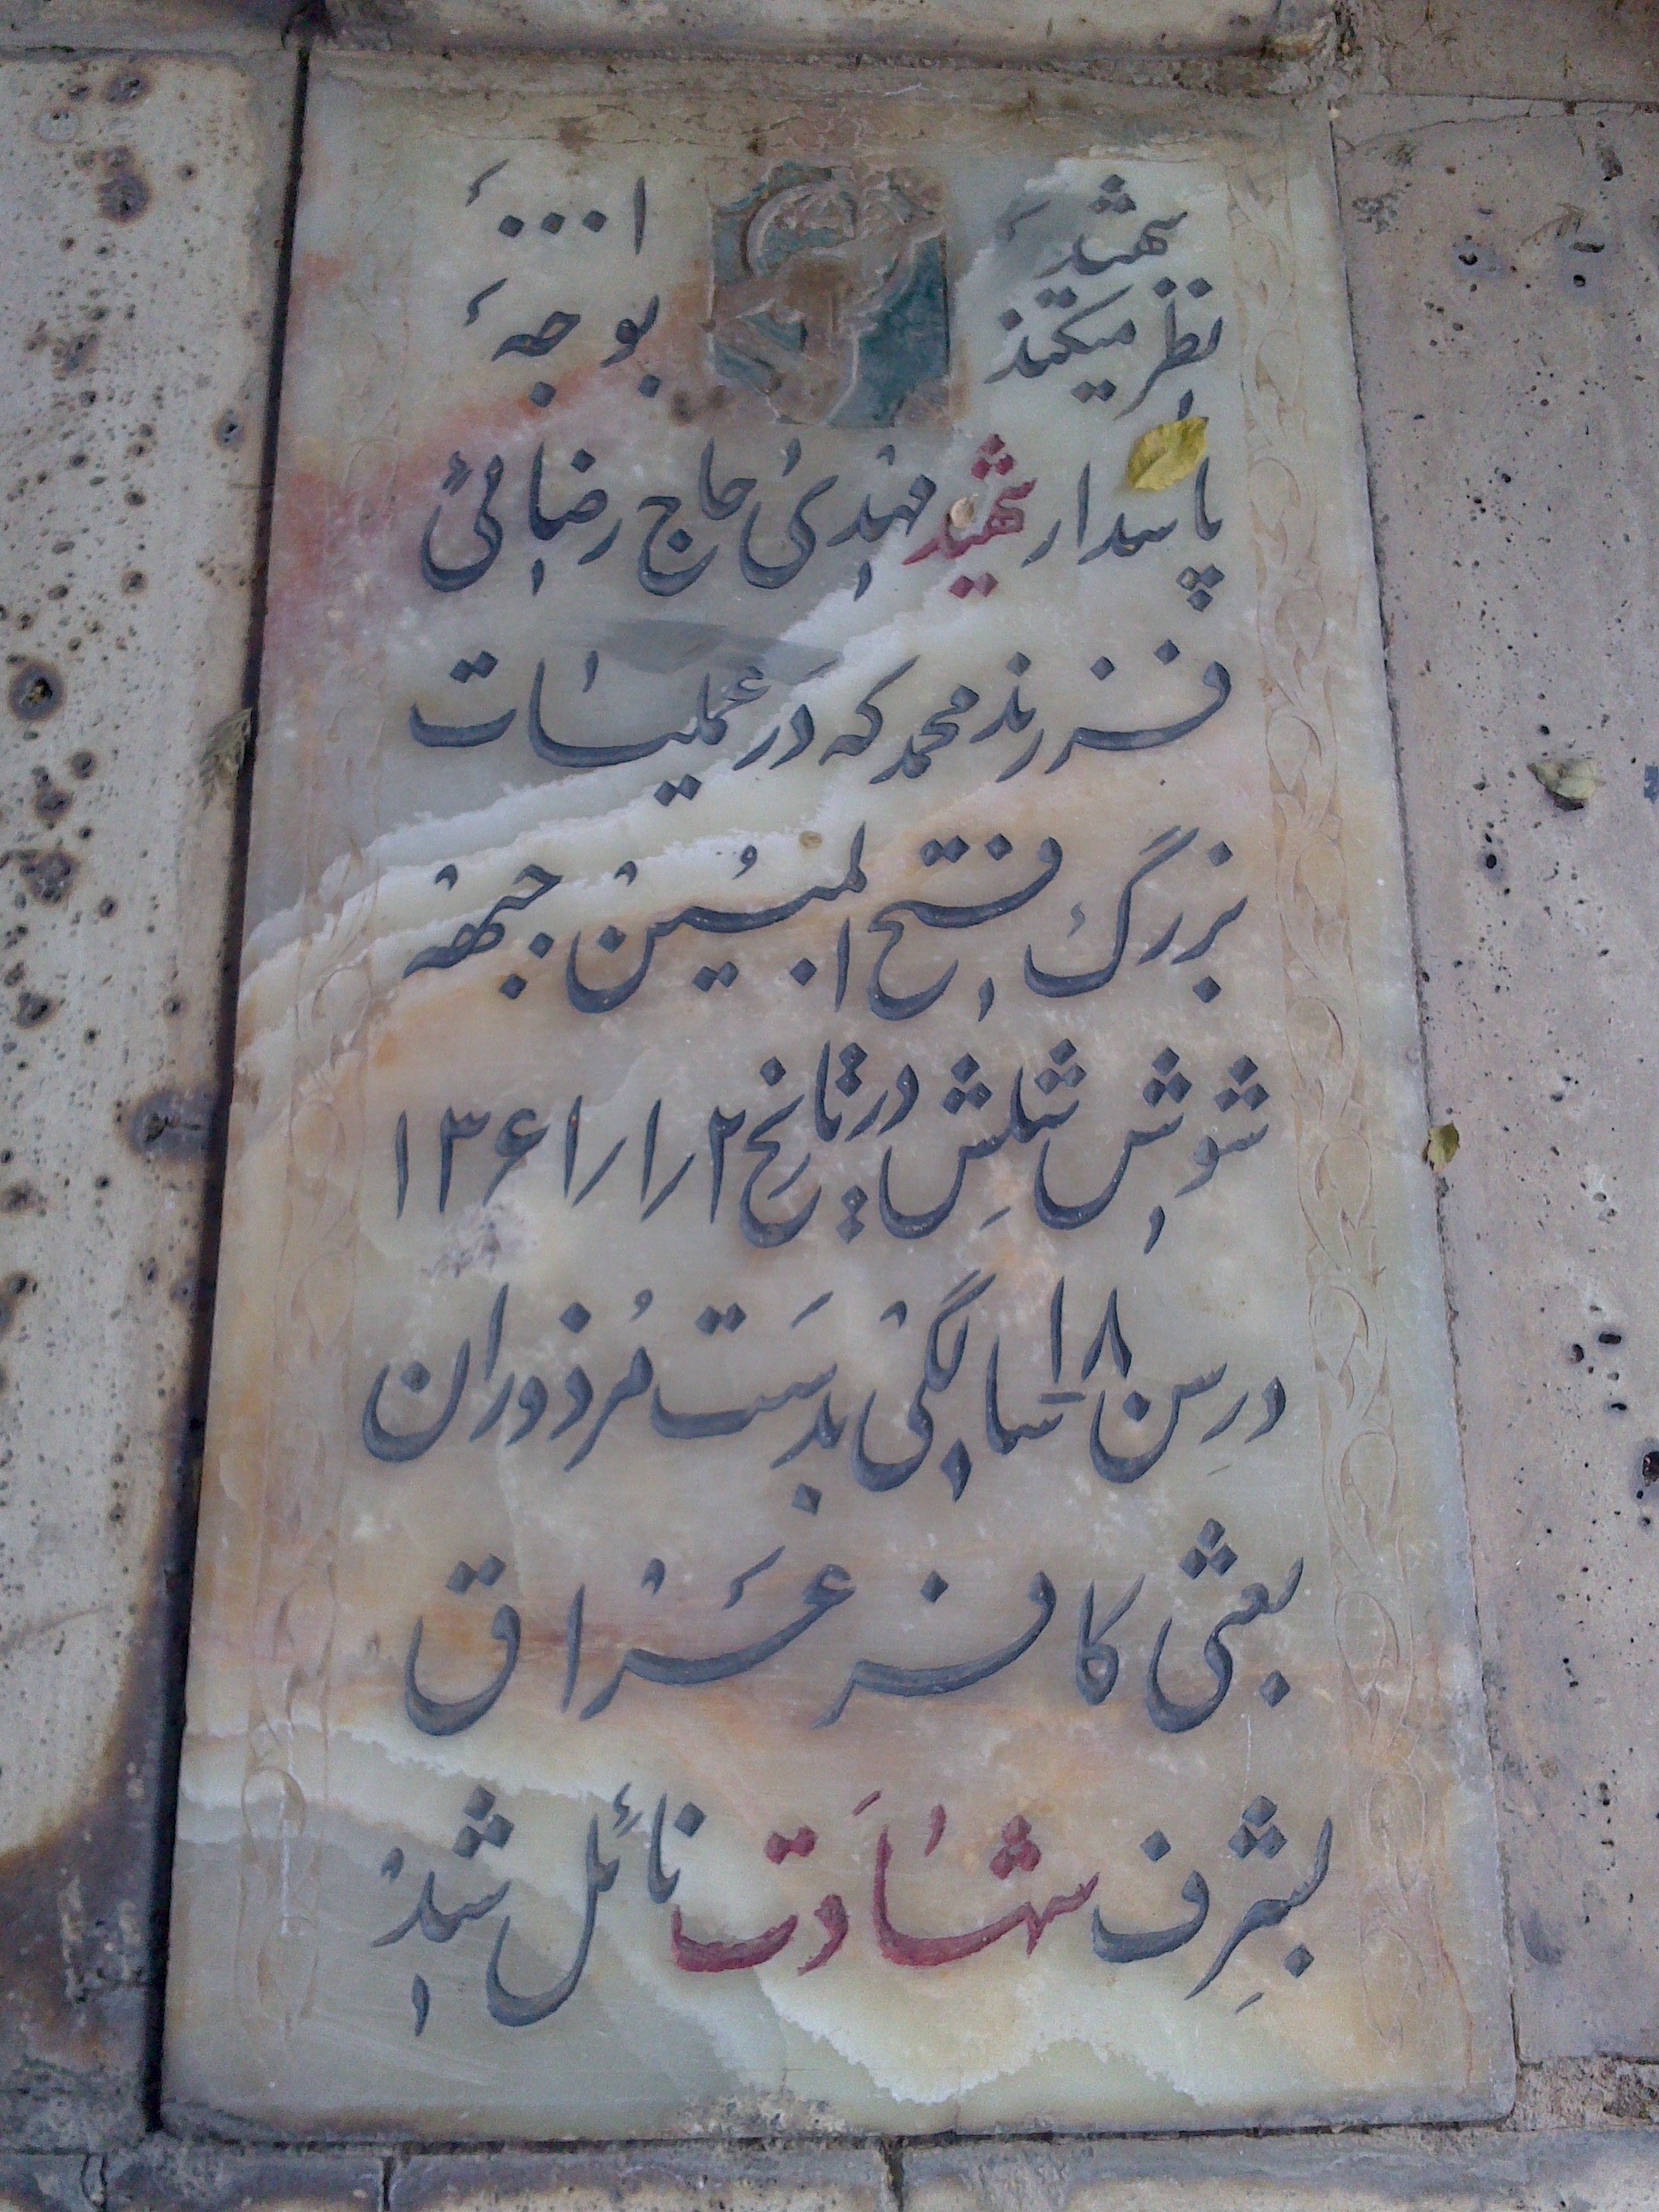 شهید ا...
نظر میکند بوجه
پاسدار شهید مهدی حاج رضائی
فرزند محمد که در عملیات
بزرگ فتح المبین جبهه
شوش شلش در تاریخ ۲ر۱ر۱۳۶۱
در سن ۱۸ سالگی بدست مزدوران
بعثی کافر عراق
بشرف شهادت نائل شد